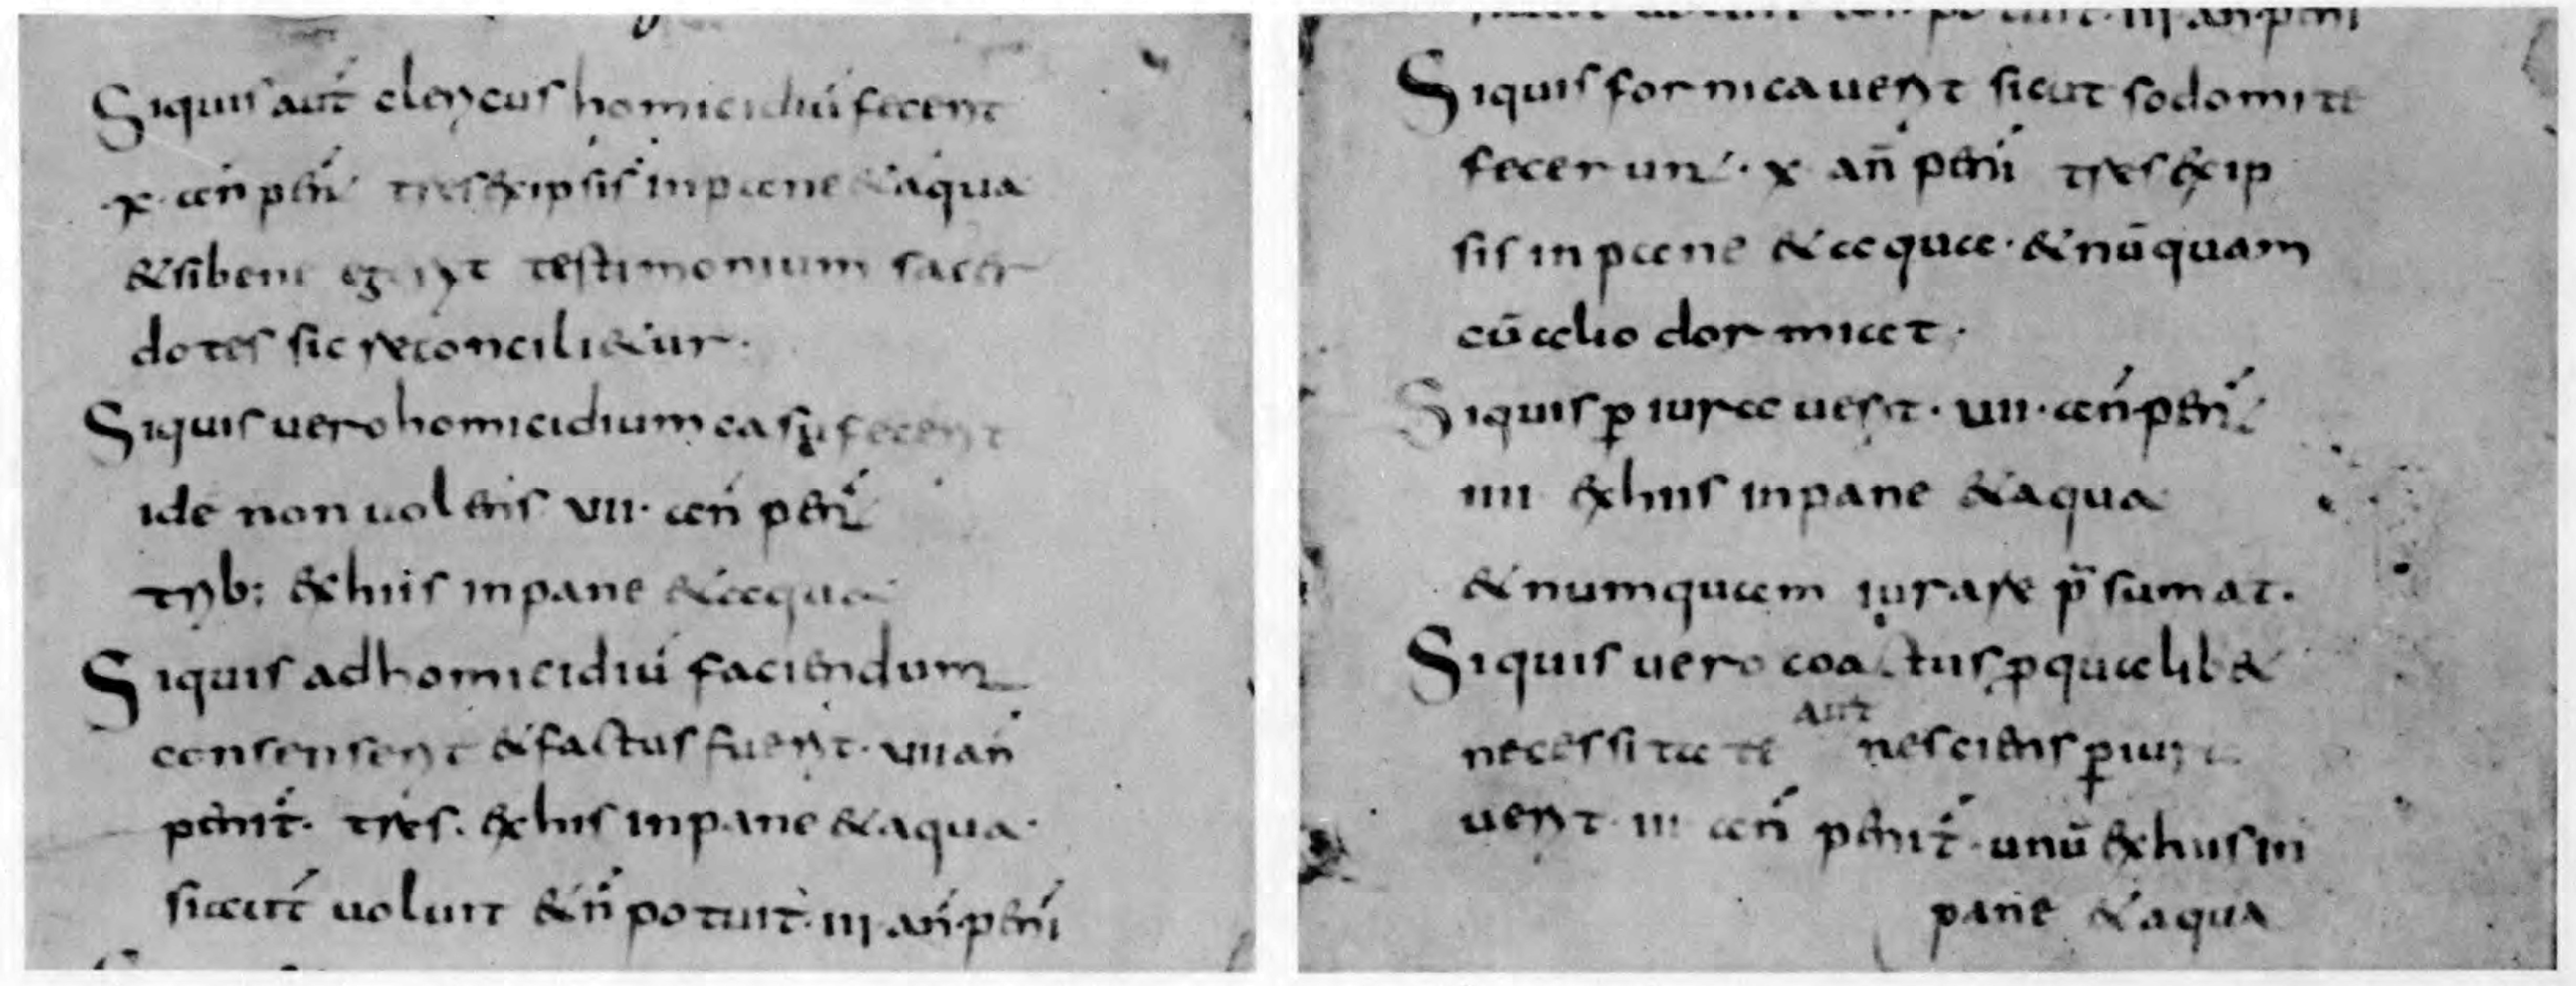 Siquis aut́ clericus homicidiú fecerit
x · an̄ peń tres exipsis inpane & aqua
& sibene egerit testimonium sacer
dotes sic reconcili&ur ·
Siquis uero homicidium casu fecerit
ide non uolens VII · an̄ peń
trib; exhiis inpane & aqua
Siquis adhomicidiú faciendum
consenserit & factus fuerit · VII an̄
penit́ · tres · exhis inpane & aqua ·
siaut́ uoluit & ń potuit · III · an̄ · peni
Siquis fornicauerit sicut sodomite
fecerunt · x an̄ peni tres exip
sis inpane & aqua · & nūquam
cū alio dormiat ·
Siquis p̱iurauerit · VII · an̄ · peń
IIII exhiis inpane & aqua
& numquam iurare p̄sumat ·
Siquis uero coactus p̱qualib&
necessitate Aut nesciens p̱iura
uerit · III an̄ penit́ · unū exhiis in
pane & aqua